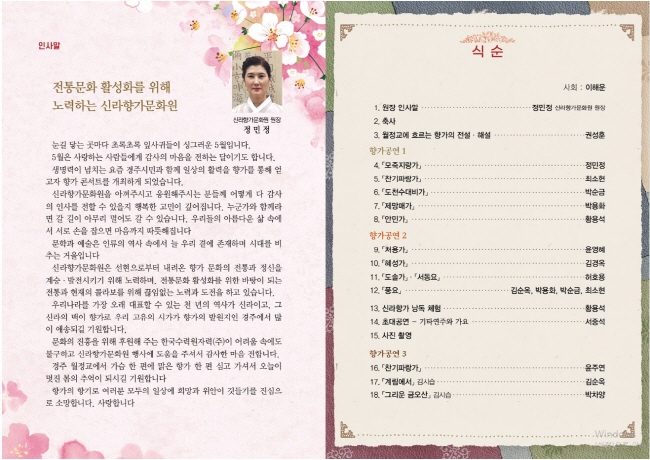 인사말
전통문화 활성화를 위해
노력하는 신라향가문화원
신라향가문화원 원장
정 민 정
눈길 닿는 곳마다 초록초록 잎사귀들이 싱그러운 5월입니다.
5월은 사랑하는 사람들에게 감사의 마음을 전하는 달이기도 합니다.
생명력이 넘치는 요즘 경주시민과 함께 일상의 활력을 향가를 통해 얻
고자 향가 콘서트를 개최하게 되었습니다.
신라향가문화원을 아껴주시고 응원해주시는 분들께 어떻게 다 감사
의 인사를 전할 수 있을지 행복한 고민이 깊어집니다. 누군가와 함께라
면 갈 길이 아무리 멀어도 갈 수 있습니다. 우리들의 아름다운 삶 속에
서 서로 손을 잡으면 마음까지 따뜻해집니다
문학과 예술은 인류의 역사 속에서 늘 우리 곁에 존재하며 시대를 비
추는 거울입니다
신라향가문화원은 선현으로부터 내려온 향가 문화의 전통과 정신을
계승·발전시키기 위해 노력하며, 전통문화 활성화를 위한 바탕이 되는
전통과 현재의 콜라보를 위해 끊임없는 노력과 도전을 하고 있습니다.
우리나라를 가장 오래 대표할 수 있는 천 년의 역사가 신라이고, 그
신라의 맥이 향가로 우리 고유의 시가가 향가의 발원지인 경주에서 많
이 애송되길 기원합니다.
문화의 진흥을 위해 후원해 주는 한국수력원자력(주)이 어려움 속에도
불구하고 신라향가문화원 행사에 도움을 주셔서 감사한 마음 전합니다.
경주 월정교에서 가슴 한 편에 맑은 향가 한 편 심고 가셔서 오늘이
멋진 봄의 추억이 되시길 기원합니다
향가의 향기로 여러분 모두의 일상에 희망과 위안이 깃들기를 진심으
로 소망합니다. 사랑합니다
식 순
사회 : 이해운
1. 원장 인사말 정민정 신라향가문화원 원장
2. 축사
3. 월정교에 흐르는 향가의 전설·해설 권성훈
향가공연 1
4. 「모죽지랑가」 정민정
5. 「찬기파랑가」 최소현
6. 「도천수대비가」 박순금
7. 「제망매가」 박용화
8. 「안민가」 황용석
향가공연 2
9. 「처용가」 윤영혜
10. 「혜성가」 김경옥
11. 「도솔가」·「서동요」 허호용
12. 「풍요」 김순옥, 박용화, 박순금, 최소현
13. 신라향가 낭독 체험 황용석
14. 초대공연 - 기타연주와 가요 서중석
15. 사진 촬영
향가공연 3
16. 「찬기파랑가」 윤주연
17. 「계림에서」 김시습 김순옥
18. 「그리운 금오산」 김시습 박차양
Windows